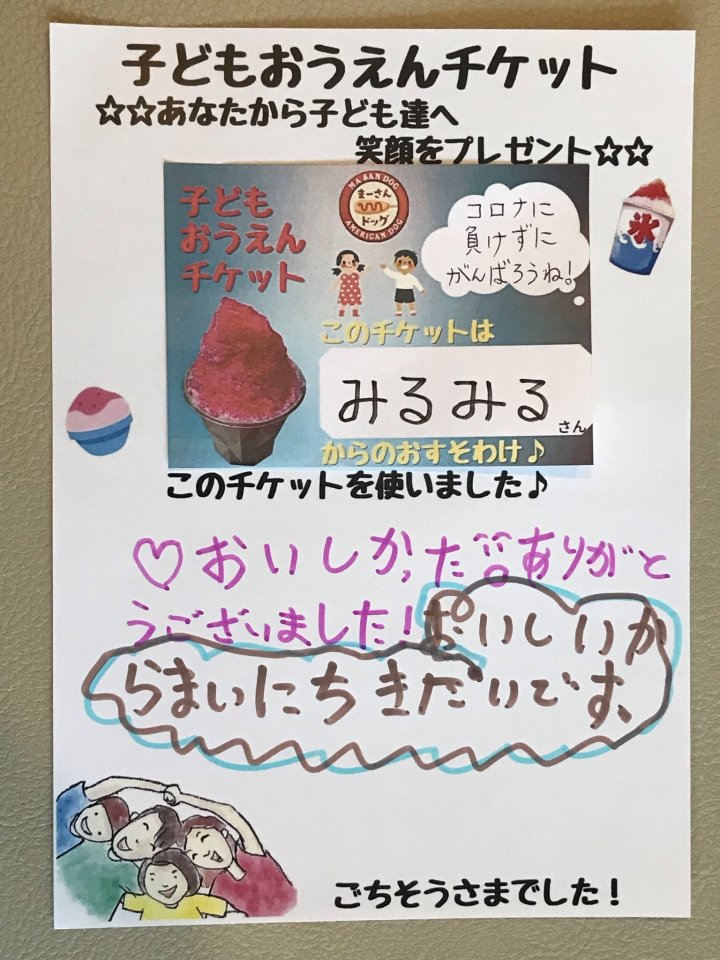 子どもおうえんチケット
☆☆あなたから子ども達へ
笑顔をプレゼント☆☆
子ども
おうえん
チケット
MA SAN DOG
まーさん
ドッグ
AMERICAN DOG
コロナに
負けずに
がんばろうね!
氷
このチケットは
みるみる
さん
からのおすそわけ♪
このチケットを使いました♪
♡おいしかった ありがと
うございました!
おいしいか
らまいにちきたいです、
ごちそうさまでした!